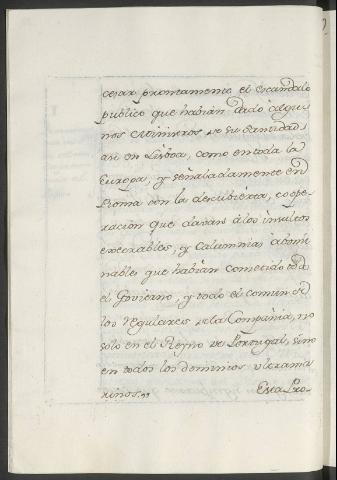 cesar prontamente el escandalo
publico que habian dado algu-
nos Ministros de Su Santidad
asi en Lisboa, como en toda la
Europa, y señaladamente en
Roma con la descubierta, coope-
racion que davan á los insultos
execrables, y calumnias abomi-
nables que habian cometido
el Govierno, y todo el comun de
los regulares de la Compañia, no
solo en el Reyno de Portugal, sino
en todos los dominios ultrama-
rinos.
Esta Pro-